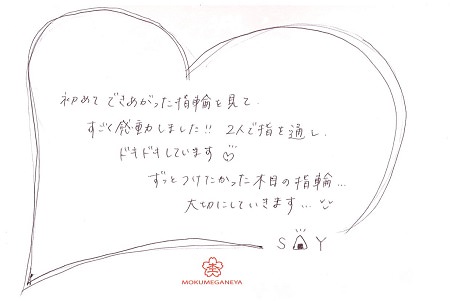 初めてできあがった指輪を見て、
すごく感動しました!! 2人で指を通し、
ドキドキしています
ずっとつけたかった木目の指輪…
大切にしていきます…
S Y
MOKUMEGANEYA